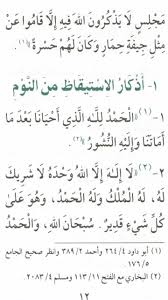 مَجْلِسٍ لَا يَذْكُرُونَ اللَّهَ فِيهِ إِلَّا قَامُوا عَنْ
مِثْلِ جِيفَةِ حِمَارٍ وَكَانَ لَهُمْ حَسْرَةً» (١).
١- أَذْكَارُ الِاسْتِيقَاظِ مِنَ النَّوْمِ
١- (١) «الْحَمْدُ لِلَّهِ الَّذِي أَحْيَانَا بَعْدَ مَا
أَمَاتَنَا وَإِلَيْهِ النُّشُورُ» (٢).
٢- (٢) «لَا إِلَهَ إِلَّا اللَّهُ وَحْدَهُ لَا شَرِيكَ
لَهُ، لَهُ الْمُلْكُ وَلَهُ الْحَمْدُ، وَهُوَ عَلَى
كُلِّ شَيْءٍ قَدِيرٌ. سُبْحَانَ اللَّهِ، وَالْحَمْدُ
(١) أبو داود ٢٦٤/٤ وأحمد ٣٨٩/٢ وانظر صحيح الجامع
١٧٦/٥.
(٢) البخاري مع الفتح ١١٣/١١ ومسلم ٢٠٨٣/٤.
١٢